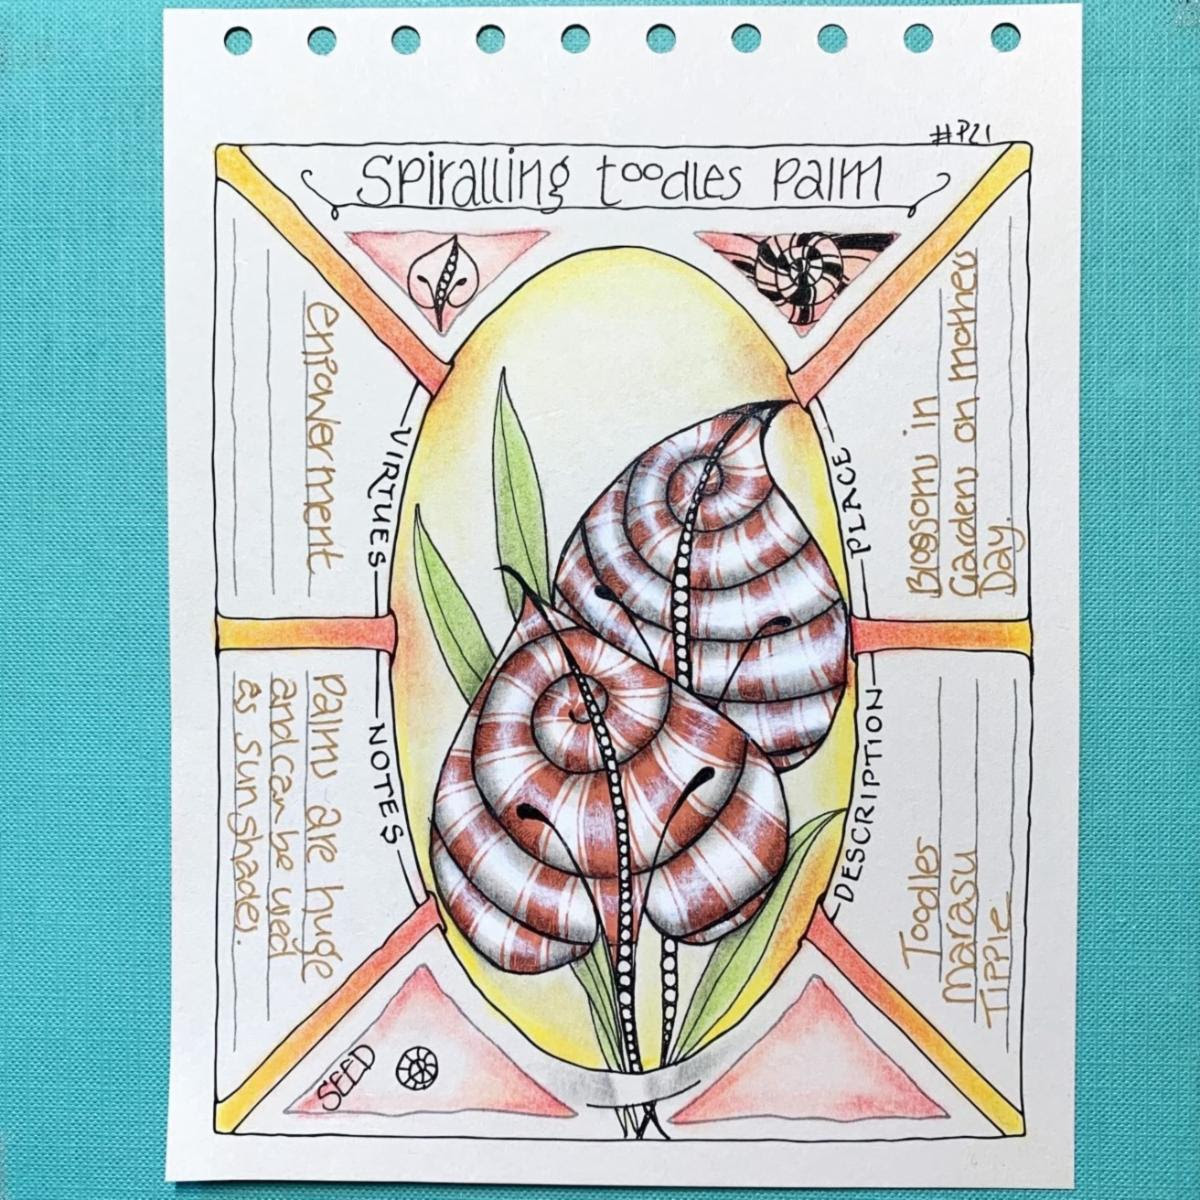 #P21
Spiralling toodles Palm
VIRTUES
empowerment
PLACE
Blossoms in
Gardens on mothers
Day.
NOTES
palms are huge
and can be used
as sunshades.
DESCRIPTION
Toodles
Marasu
Tipple
SEED